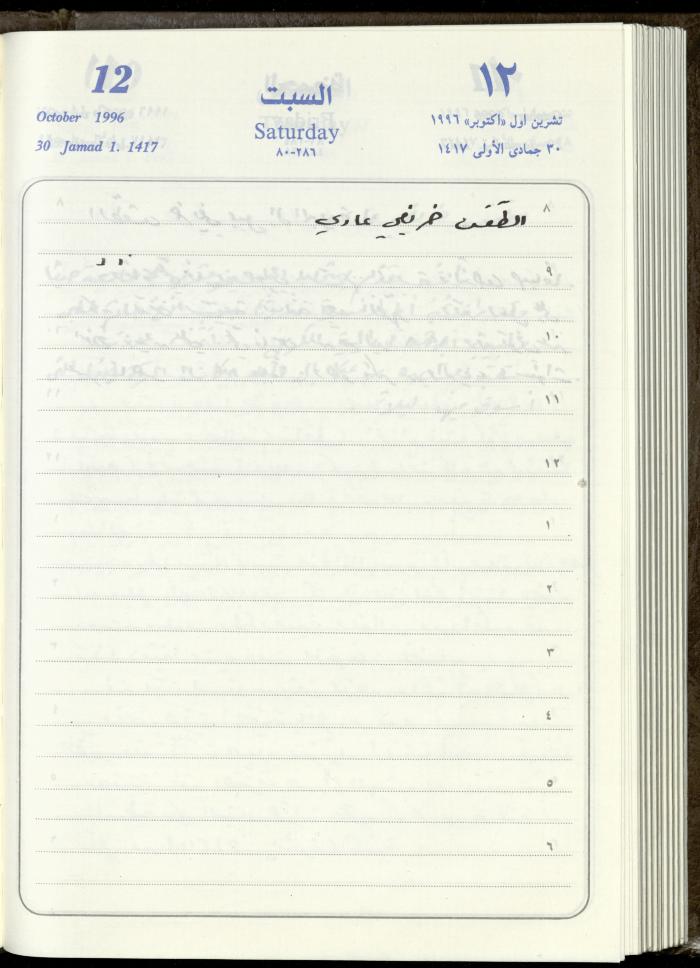 12 السبت ١٢
October 1996 Saturday تشرين اول «اكتوبر» ١٩٩٦
30 Jamad 1. 1417 ٢٨٦-٨٠ ٣٠ جمادى الأولى ١٤١٧
٨ الطقس خريفي عادي
٩
١٠
١١
١٢
١
٢
٣
٤
٥
٦